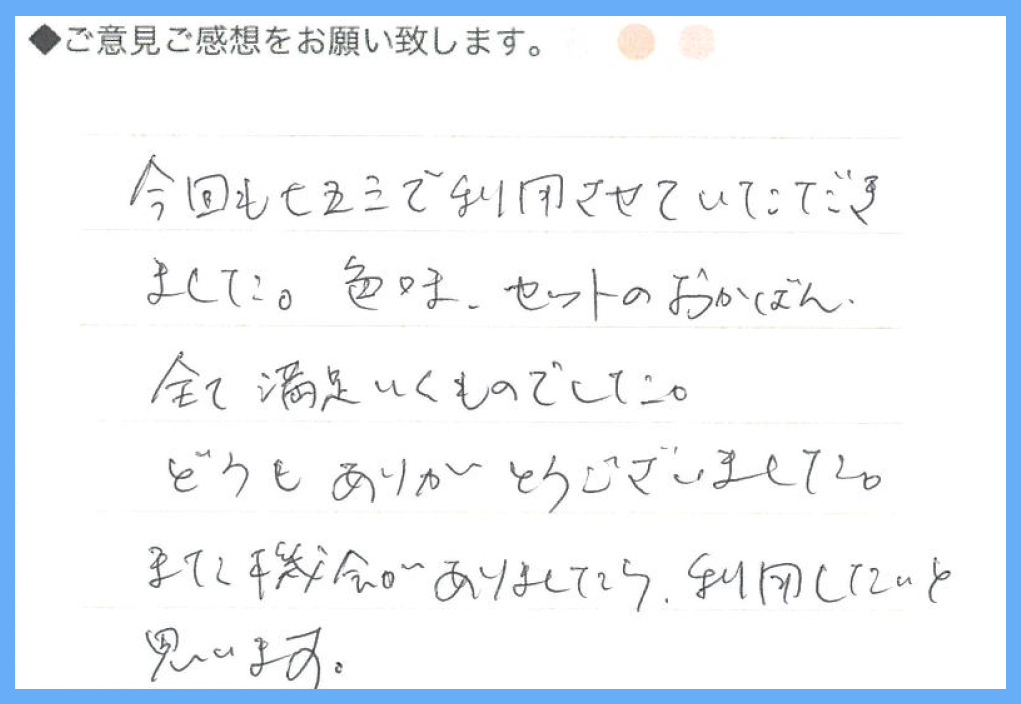 ◆ご意見ご感想をお願い致します。
今回も七五三で利用させていただき
ました。色味、セットのおかばん、
全て満足いくものでした。
どうもありがとうございました。
また機会がありましたら、利用したいと
思います。